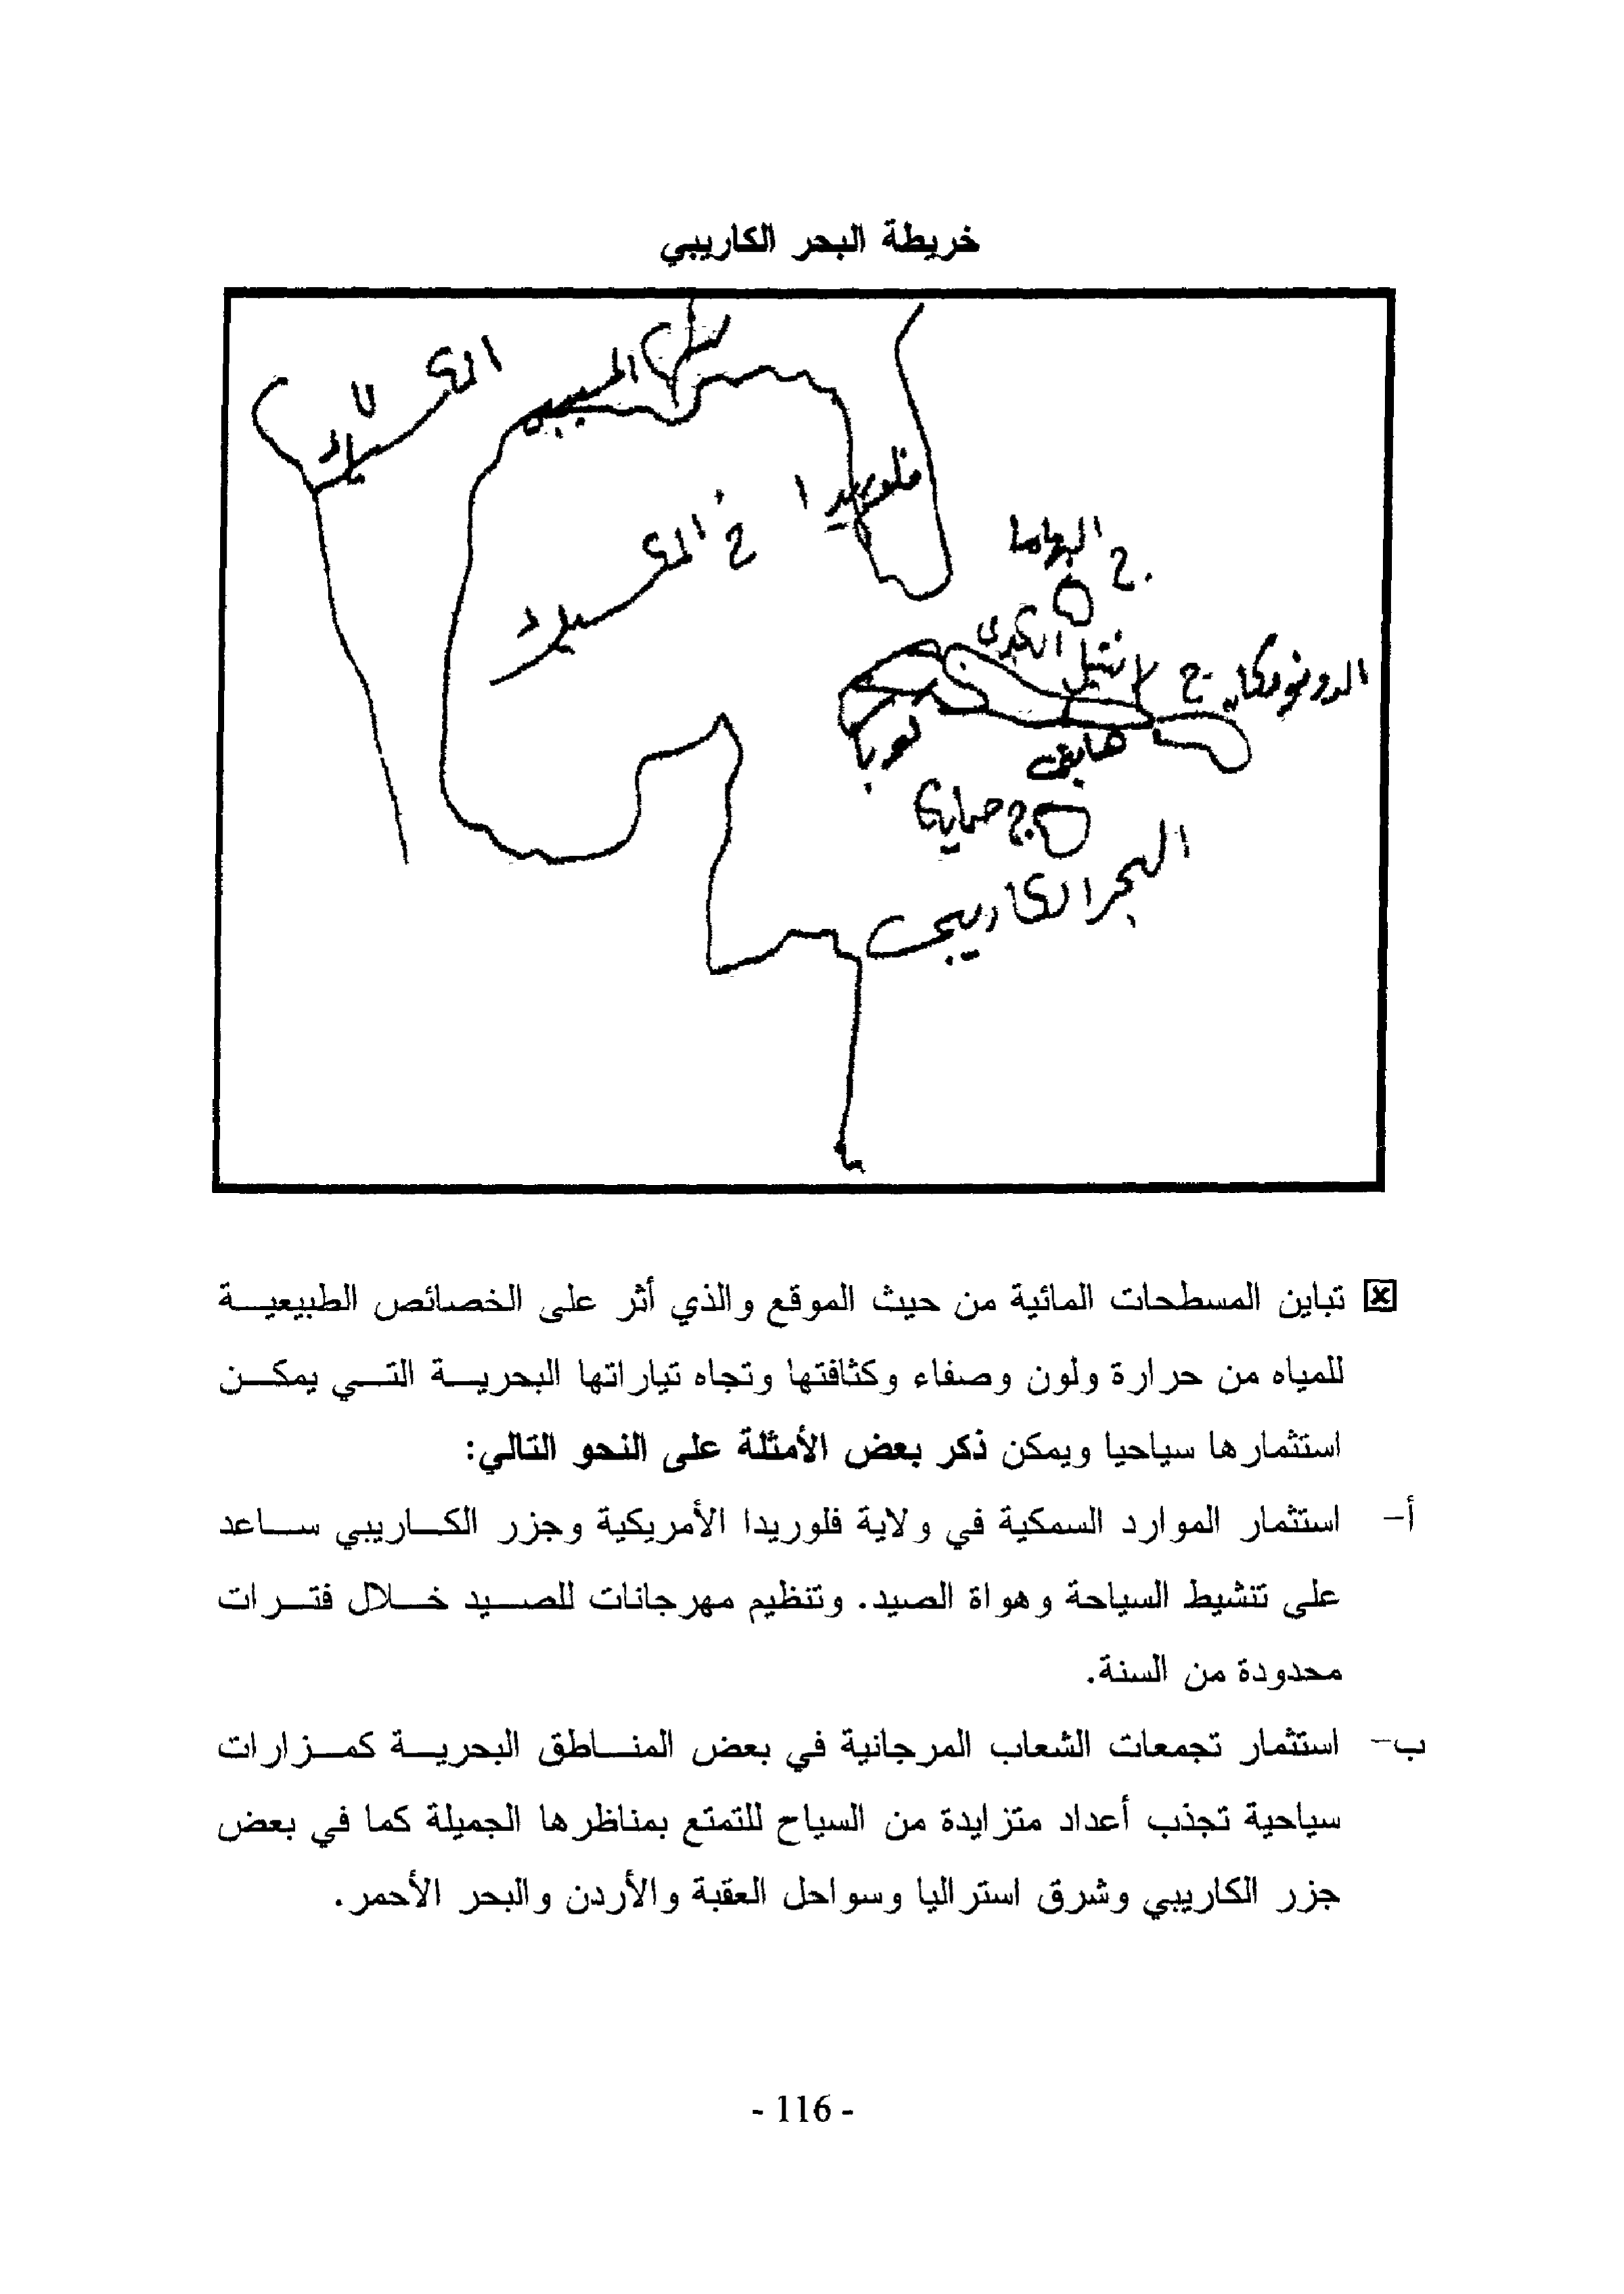 خريطة البحر الكاريبي
المسيسبي
فلوريدا
خ المكسيك
ج البهاما
ج انتيل الكبرى
كوبا
ج جمايكا
البحر الكاريبي
تباين المسطحات المائية من حيث الموقع والذي أثر على الخصائص الطبيعية
للمياه من حرارة ولون وصفاء وكثافتها وتجاه تياراتها البحرية التي يمكن
استثمارها سياحيا ويمكن ذكر بعض الأمثلة على النحو التالي:
أ- استثمار الموارد السمكية في ولاية فلوريدا الأمريكية وجزر الكاريبي ساعد
على تنشيط السياحة وهواة الصيد. وتنظيم مهرجانات للصيد خلال فترات
محدودة من السنة.
ب- استثمار تجمعات الشعاب المرجانية في بعض المناطق البحرية كمزارات
سياحية تجذب أعداد متزايدة من السياح للتمتع بمناظرها الجميلة كما في بعض
جزر الكاريبي وشرق استراليا وسواحل العقبة والأردن والبحر الأحمر.
- 116 -